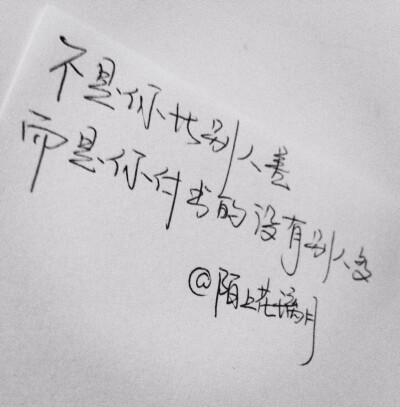 不是你比别人差
而是你付出的没有别人多
@陌上花月